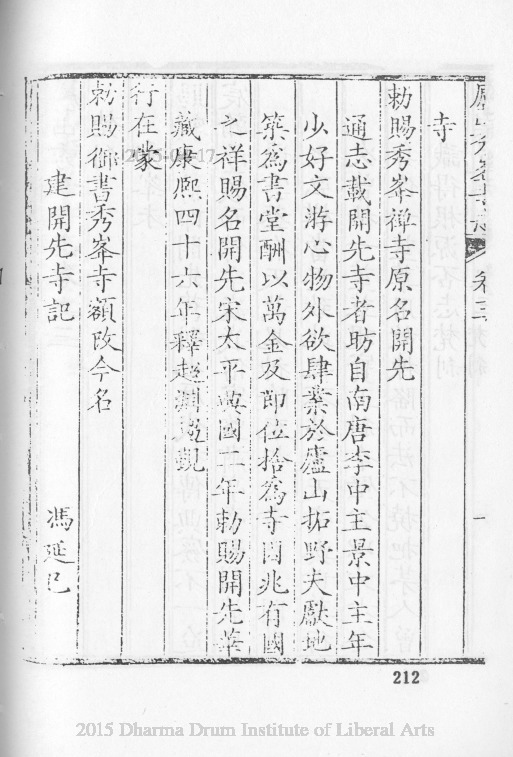 廬山秀峯寺志 卷三 一
寺
勅賜秀峯禅寺原名開先
通志載開先寺者昉自南唐李中主景中主年
少好文游心物外欲肆業於廬山拓野夫獻地
築爲書堂酬以萬金及即位捨爲寺因兆有國
之祥賜名開先宋太平興國二年勅賜開先華
藏康熙四十六年釋超淵迎觐
行在蒙
勅賜御書秀峯寺額改今名
建開先寺記 馮延巳
212
2015 Dharma Drum Institute of Liberal Arts